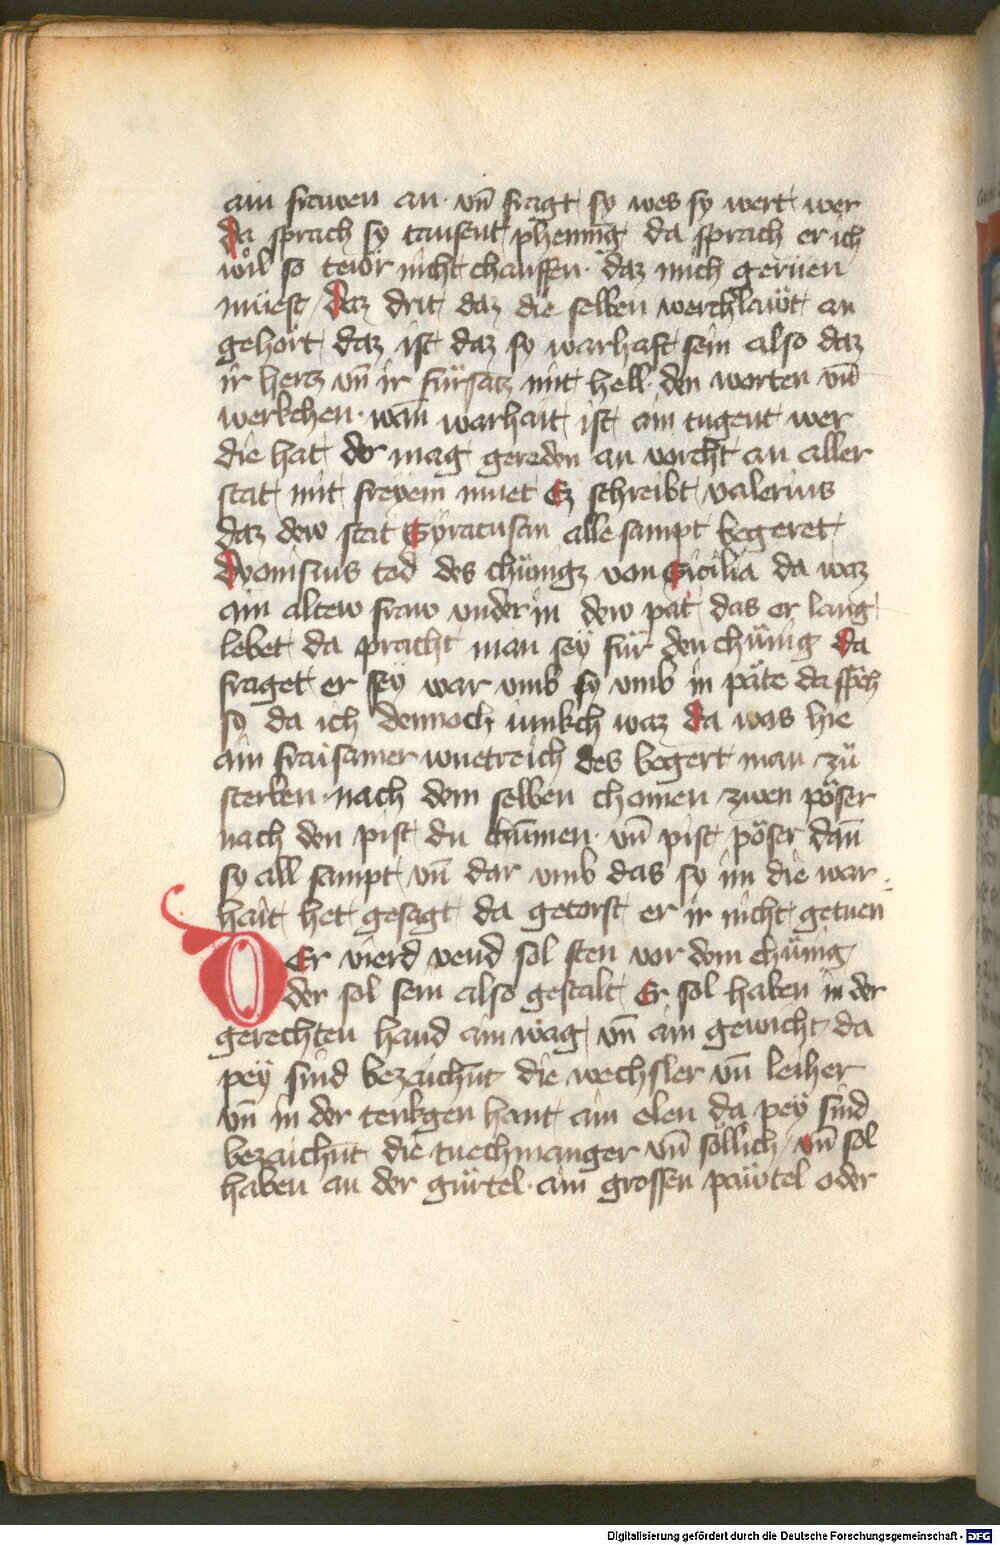 ain frawen an · vn̄ fragt sy wes sy wert wer
Da sprach sy tausent phening da sprach er ich
wöl so tewr nicht chauffen · daz mich gerüen
müest / Daz drit daz die selben werchläwt an
gehört daz ist daz sy warhaft sein also daz
ir hertz vn̄ ir fürsatz mit hell · den worten vn̄
werkchen · wan̄ warhait ist ain tugent wer
die hat der mag gereden an vorcht an aller
stat mit freyem muet Ez schreibt valerius
daz dew stat Syracusan alle sampt begeret
Dyonisius tod des chünigz von Sicilia da waz
ain altew fraw vnder in dew pat das er lang
lebet da pracht man sey für den chünig Da
fraget er sey war vmb sy vmb in päte da sp̄ch
sy da ich dennoch iunkch waz Da was hie
ain fraisamer wuetreich des begert man zü
sterben · nach dem selben chomen zwen pöser
nach den pist du chūmen · vn̄ pist pöser dan̄
sy all sampt vn̄ dar vmb das sy im die war
hait het gesagt da getorst er ir nicht getuen
DEr vierd vend sol sten vor dem chünig
der sol sein also gestalt Er sol haben in der
gerechten hand ain wag vn̄ ain gewicht da
pey sind bezaichn̄t die wechsler vn̄ leiher
vn̄ in der tenkgen hant ain elen da pey sind
bezaichn̄t die tuechmanger vn̄ söllich / vn̄ sol
haben an der gürtel · ain grossen päwtel oder
Digitalisierung gefördert durch die Deutsche Forschungsgemeinschaft - DFG